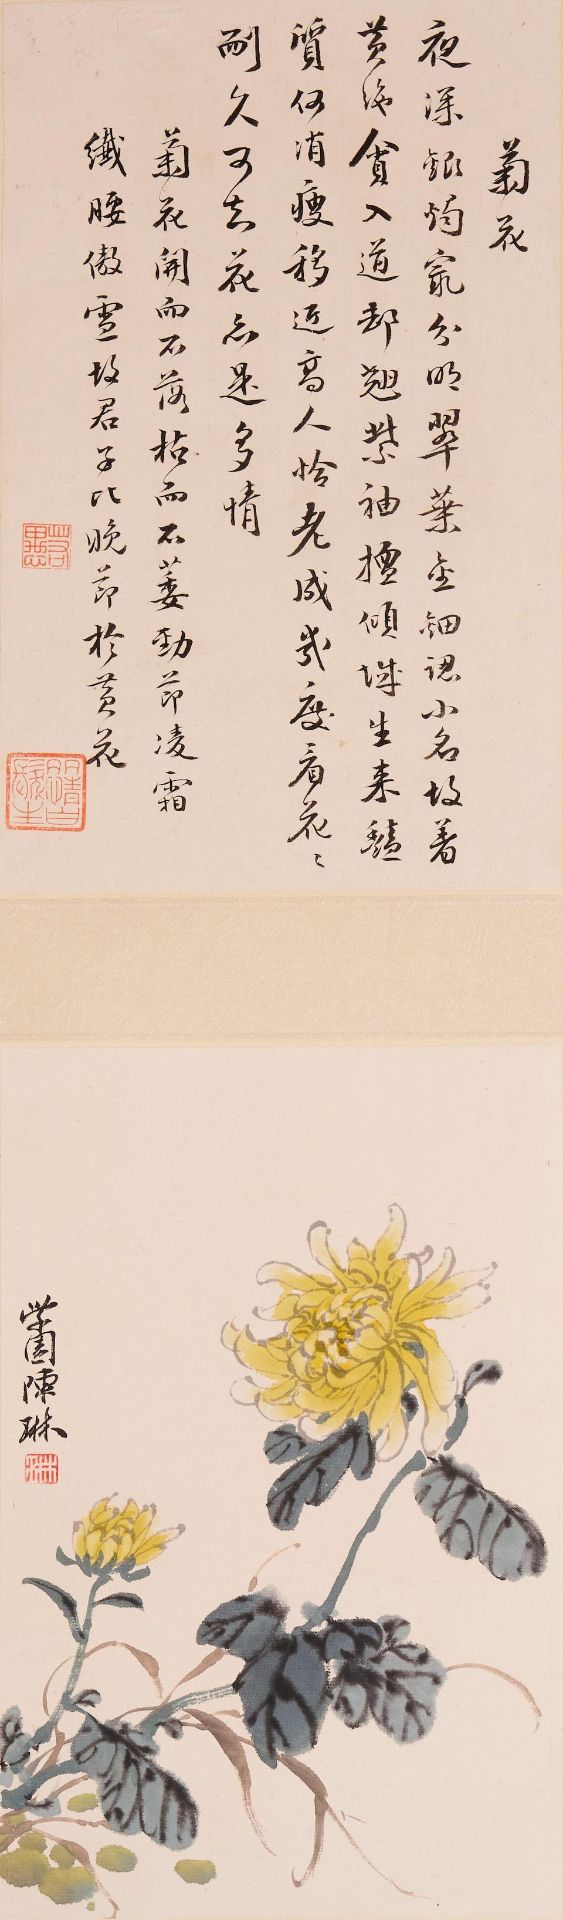 菊花
夜深銀燭最分明翠葉金鈿認小名故著
黃絁貪入道卻翹紫袖擅傾城生來豔
質何消瘦移近高人恰老成幾度看花〻
耐久可知花亦是多情
菊花開而不落枯而不萎勁節凌霜
纖腰傲雪故君子比晚節於黃花
陳琳
琳